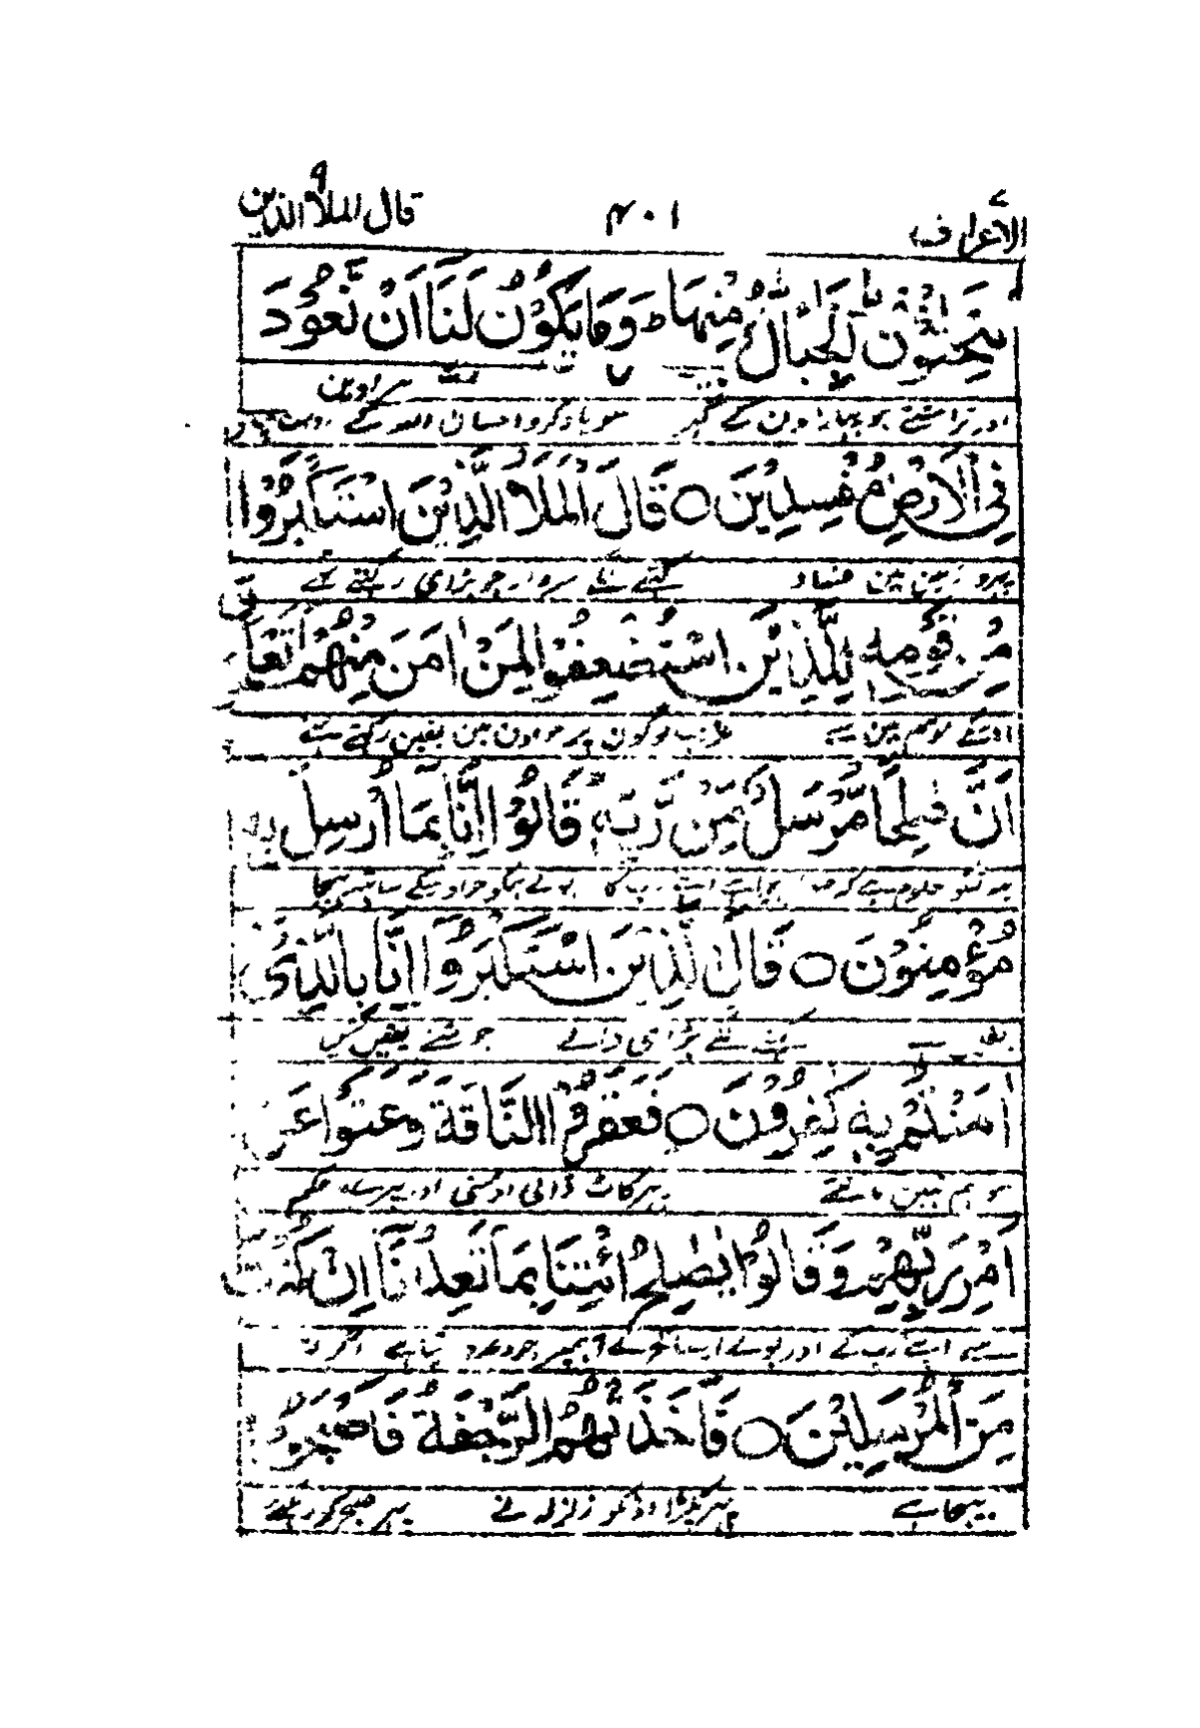 الاعراف ٧
٤٠١
قال الملا الذين ٩
الْجِبَالَ مِنْهَا ط وَمَا يَكُوْنُ لَنَا اَنْ نَّعُوْدَ
اور تراشتے ہو پہاڑ اون کے گھر سو یاد کرو احسان اللہ کے
فِي الْاَرْضِ مُفْسِدِيْنَ ○ قَالَ الْمَلَاُ الَّذِيْنَ اسْتَكْبَرُوْا
پھرو زمین مین فساد کہنے لگے سردار جو بڑائی رکھتے تھے
مِنْ قَوْمِهٖ لِلَّذِيْنَ اسْتُضْعِفُوْا لِمَنْ اٰمَنَ مِنْهُمْ اَتَعْلَمُوْنَ
اوسکے قوم مین سے غریب لوگون پر جو اون مین یقین رکھتے تھے
اَنَّ صٰلِحًا مُّرْسَلٌ مِّنْ رَّبِّهٖ قَالُوْا اِنَّا بِمَا اُرْسِلَ بِهٖ
اپنے رب کا بولے ہمکو جو اوسکے ساتھ بھیجا
مُؤْمِنُوْنَ ○ قَالَ الَّذِيْنَ اسْتَكْبَرُوْا اِنَّا بِالَّذِيْ
کہنے لگے بڑائی والے جو تمنے یقین کیا
اٰمَنْتُمْ بِهٖ كٰفِرُوْنَ ○ فَعَقَرُوا النَّاقَةَ وَعَتَوْا عَنْ
سو ہم نہین مانتے پھر کاٹ ڈالی اونٹنی اور پھرے حکم
اَمْرِ رَبِّهِمْ وَقَالُوْا يٰصٰلِحُ ائْتِنَا بِمَا تَعِدُنَا اِنْ كُنْتَ
سے اپنے رب کے اور بولے اے صالح لے آ ہمپر جو وعدہ دیتا ہے اگر تو
مِنَ الْمُرْسَلِيْنَ ○ فَاَخَذَتْهُمُ الرَّجْفَةُ فَاَصْبَحُوْا
بھیجا ہے پھر پکڑا اونکو زلزلہ نے پھر صبح کو رہگئے